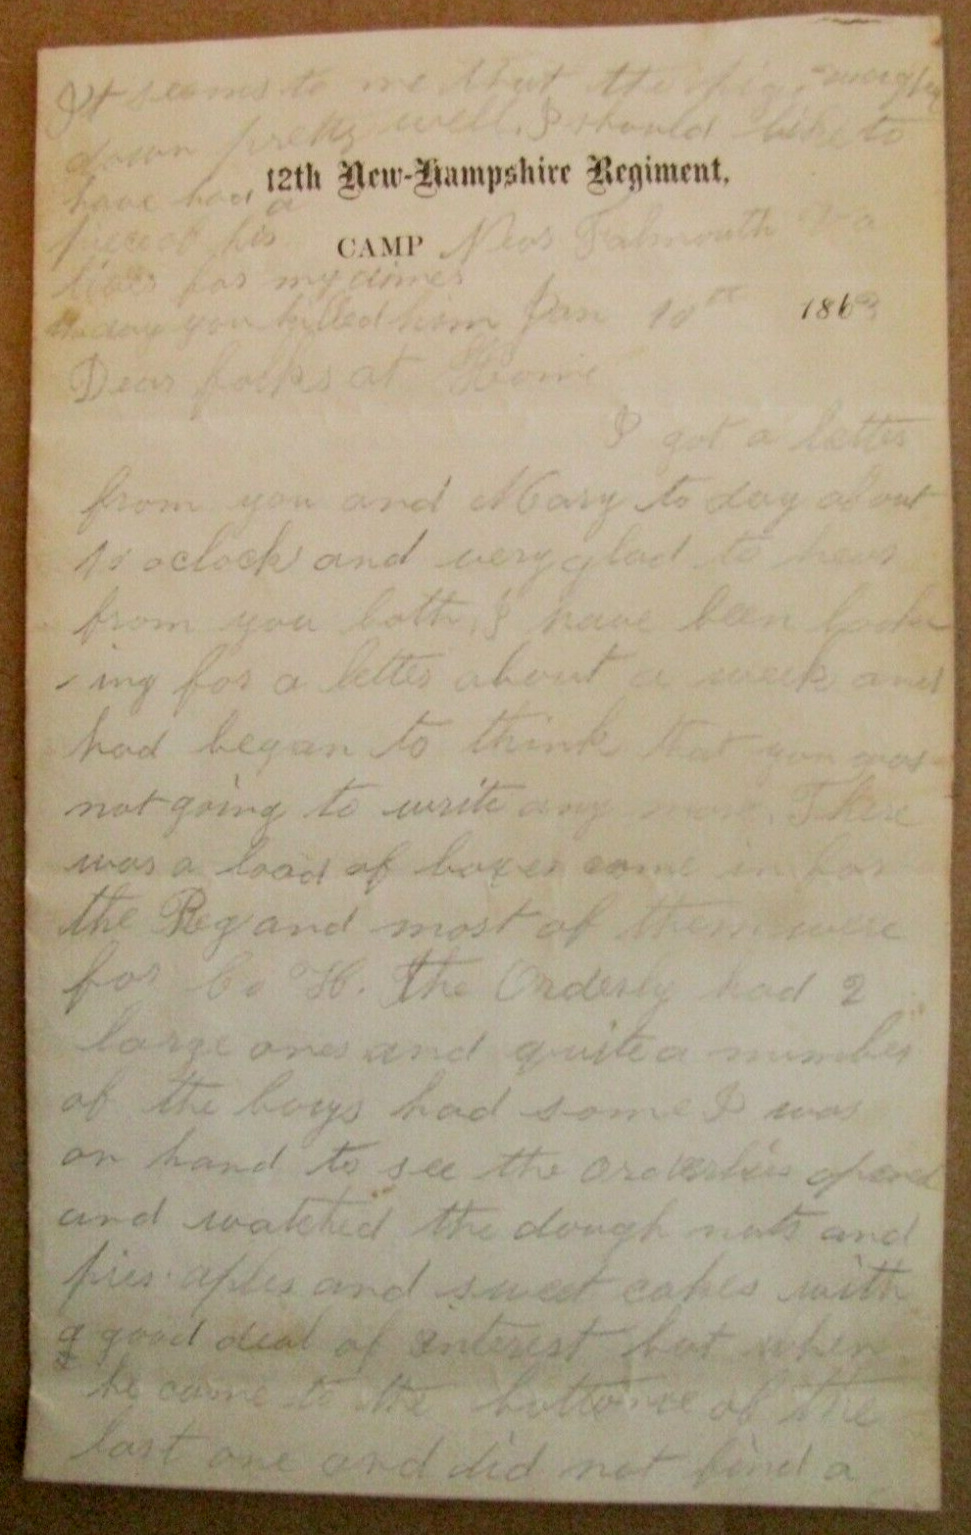 It seems to me that the pig weighed
down pretty well, I should like to
12th New-Hampshire Regiment,
have had a
piece of his
CAMP Near Falmouth Va
liver for my dinner
day you killed him Jan 10th 1863
Dear folks at Home
I got a letter
from you and Mary to day about
10 oclock and very glad to hear
from you both, I have been look
ing for a letter about a week and
had began to think that you was
not going to write any more. There
was a load of boxes come in for
the Reg and most of them were
for Co H. The Orderly had 2
large ones and quite a number
of the boys had some I was
on hand to see the opened
and watched the dough nuts and
pies aples and sweet cakes with
a good deal of interest but when
he came to the bottom of the
last one and did not find a